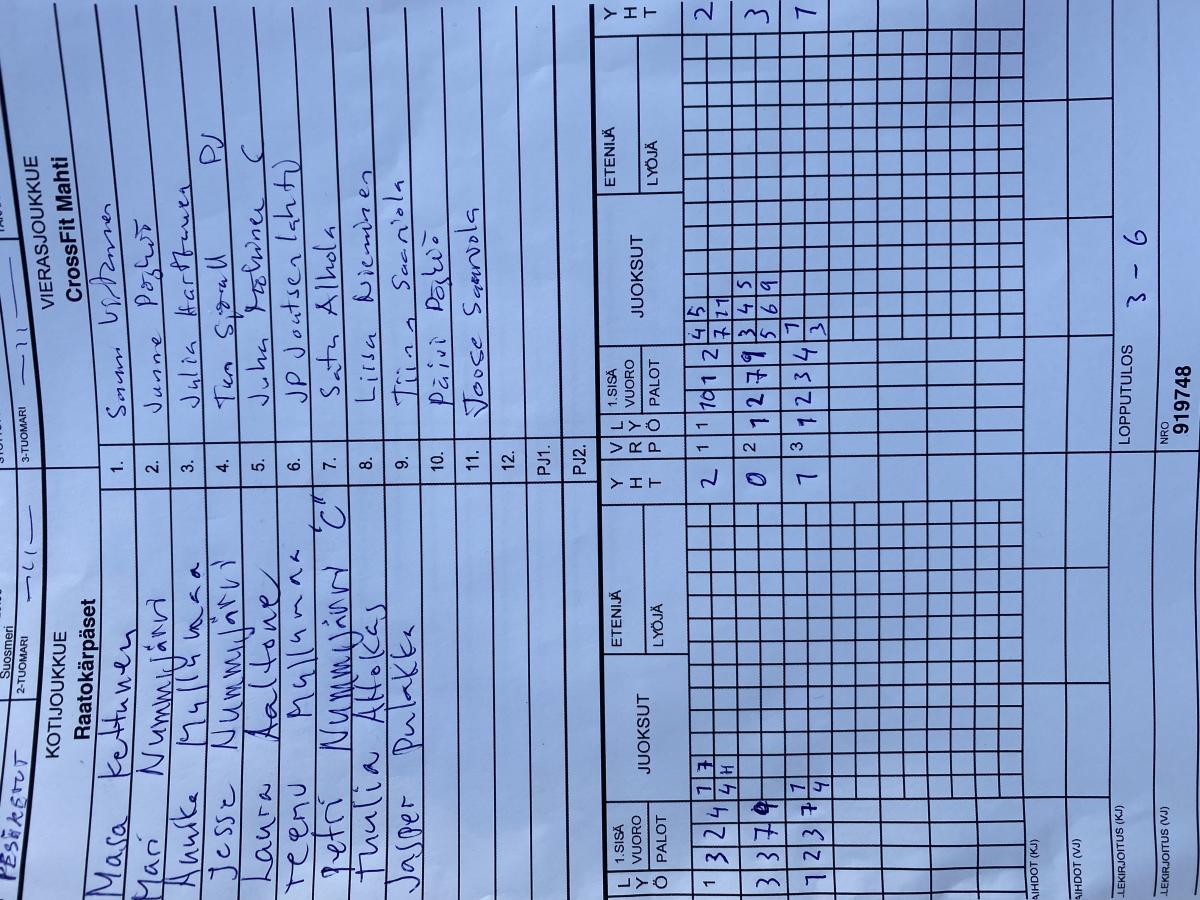 PESÄKERUT
Suosmeri
2-TUOMARI —11—
3-TUOMARI —11—
KOTIJOUKKUE
Raatokärpäset
VIERASJOUKKUE
CrossFit Mahti
Masa Kettunen 1. Sauni Virtanen
Mari Nummijärvi 2. Janne Pöyhiö
Annika Myllymaa 3. Julia Harttunen
Jesse Nummijärvi 4. PJ
Laura Aaltone 5. Juha C
Teemu Myllymaa 6. JP Joutsenlahti
Petri Nummijärvi "C" 7. Satu Alhola
Tuulia Attokas 8. Liisa Nieminen
Jasper Pulakka 9. Tiina Saariola
10. Päivi Pöyhiö
11. Joose Saarvola
12.
PJ1.
PJ2.
LYÖ 1.SISÄ VUORO PALOT JUOKSUT ETENIJÄ LYÖJÄ YHT VRP LYÖ 1.SISÄ VUORO PALOT JUOKSUT ETENIJÄ LYÖJÄ YHT
1 3 2 4 1 7 2 1 1 10 1 2 4 5 2
4 4 7 11
3 3 7 9 0 2 1 2 7 9 3 4 5 3
5 6 9
1 2 3 7 1 1 3 1 2 3 4 1 1
4 3
AIHDOT (KJ)
AIHDOT (VJ)
LEKIRJOITUS (KJ) LOPPUTULOS 3 - 6
LEKIRJOITUS (VJ) NRO 919748